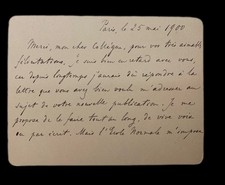 Paris, le 25 mai 1900
Merci, mon cher Collègue, pour vos très aimables
félicitations. Je suis bien en retard avec vous,
car depuis longtemps j'aurais dû répondre à la
lettre que vous avez bien voulu m'adresser au
sujet de votre nouvelle publication. Je me
propose de le faire tout au long, de vive voix
ou par écrit. Mais l'École Normale m'impose